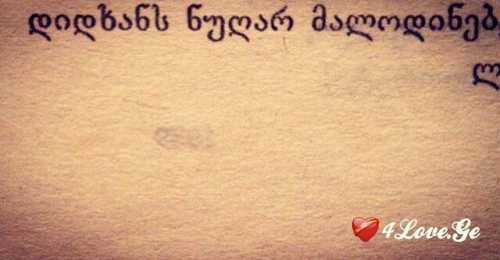 დიდხანს ნუღარ მალოდინებ,
ლ
4Love.Ge